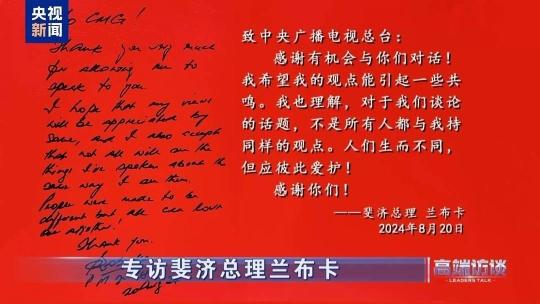 央视
新闻
To CMG!
Thank you very much
for allowing me to
speak to you.
I hope that my views
will be appreciated by
some, and I also accept
that not all will see the
things I've spoken about the
same way I see them.
People were made to be
different but all can love
one another!
Thank you.
致中央广播电视总台:
感谢有机会与你们对话!
我希望我的观点能引起一些共
鸣。我也理解,对于我们谈论
的话题,不是所有人都与我持
同样的观点。人们生而不同,
但应彼此爱护!
感谢你们!
——斐济总理 兰布卡
2024年8月20日
专访斐济总理兰布卡
高端访谈
LEADERS TALK